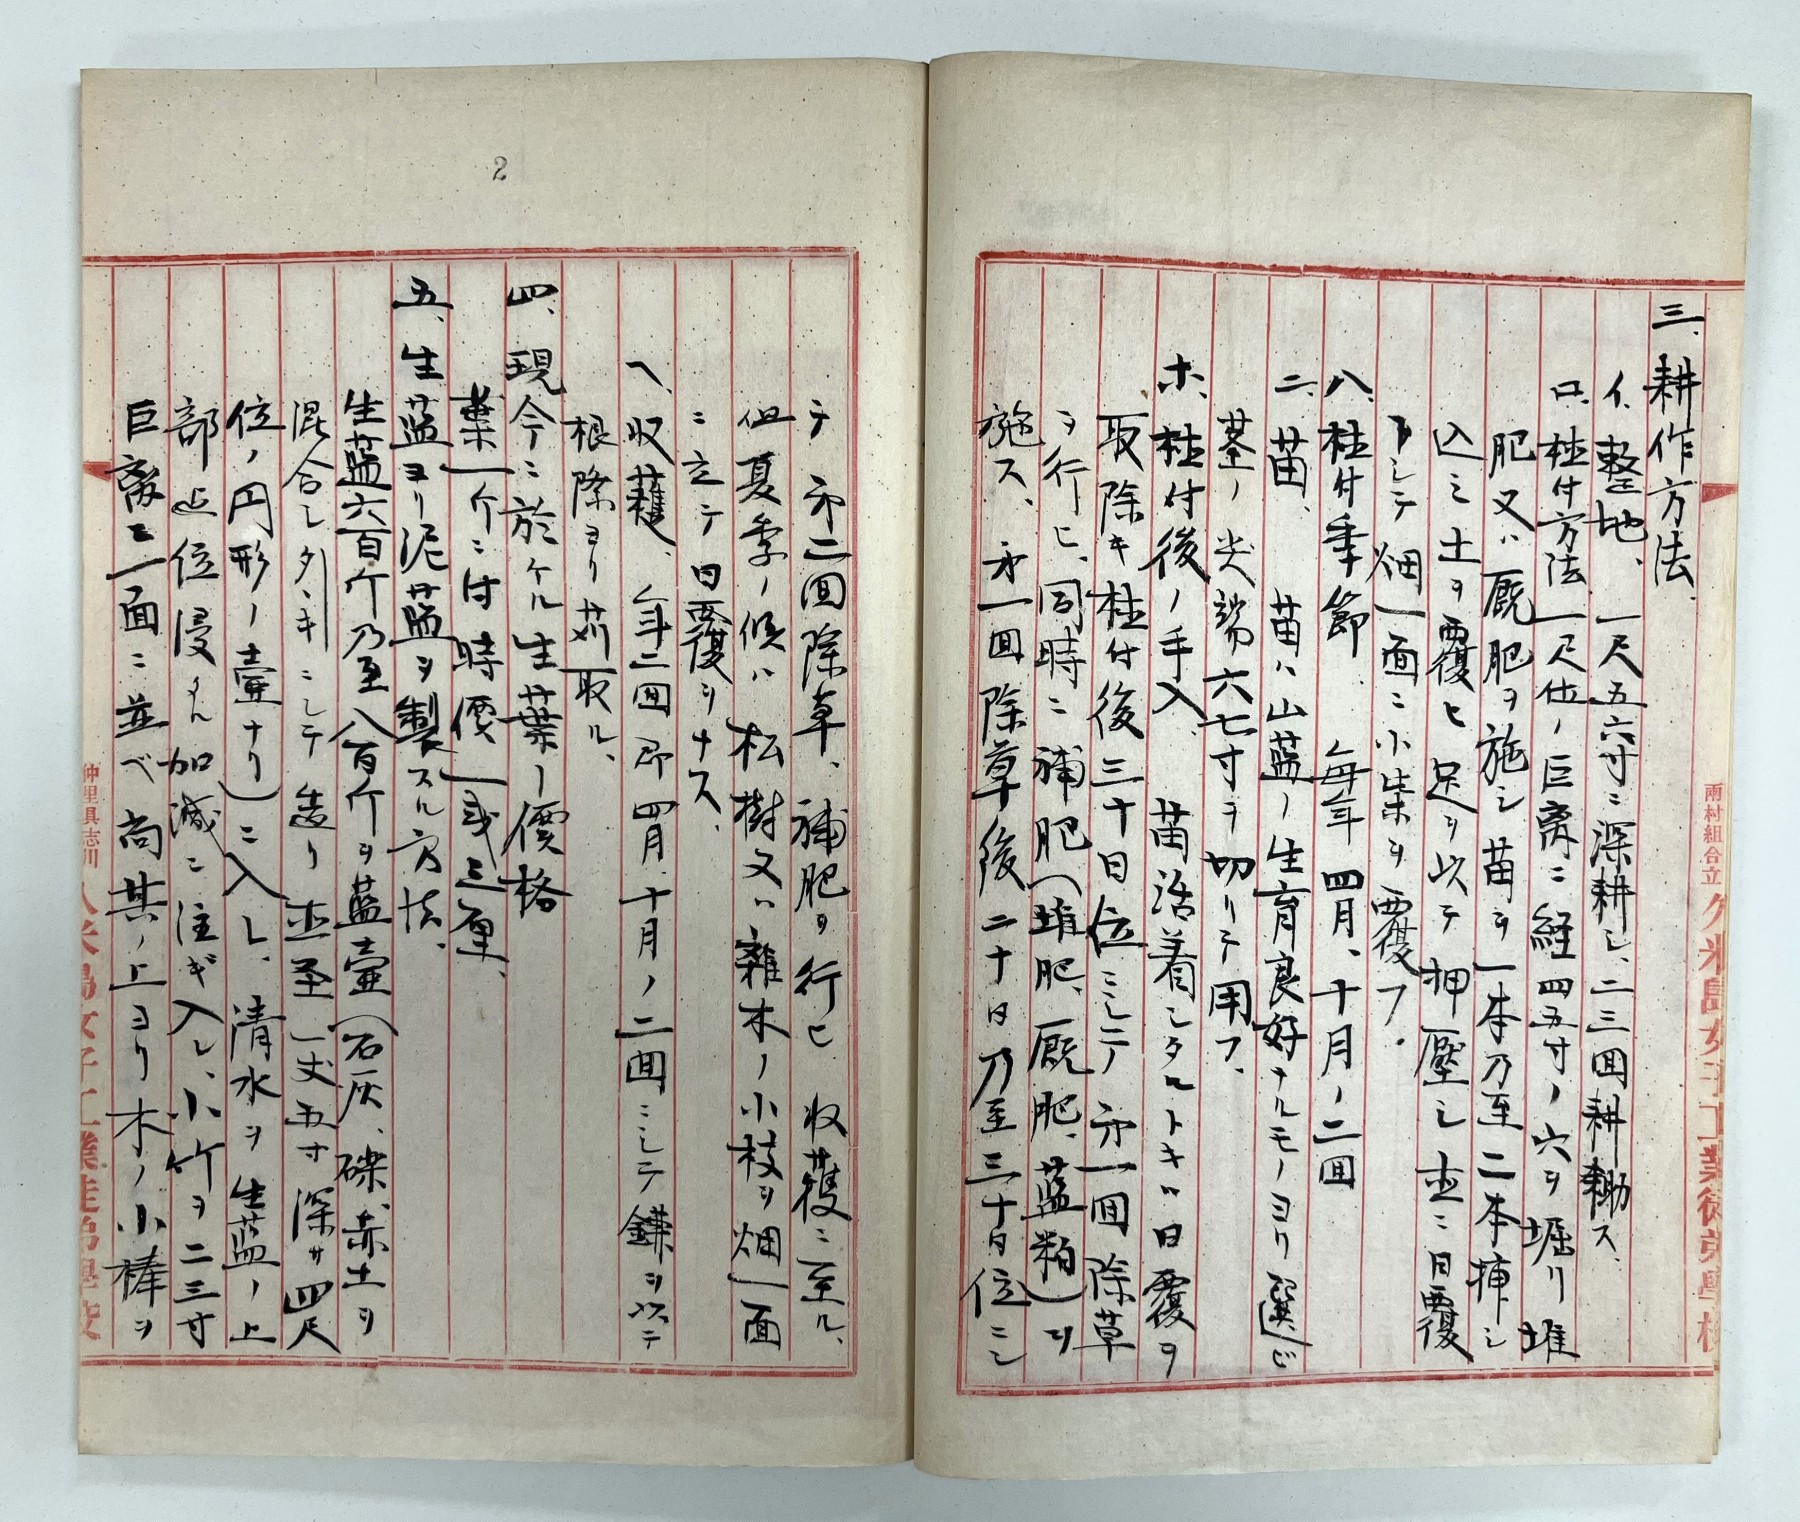 三、耕作方法、
イ、整地、 一尺五六寸ニ深耕シ、二三回耕耡ス、
ロ、植付方法一尺位ノ巨离ニ経四五寸ノ穴ヲ堀リ堆
肥又ハ厩肥ヲ施シ苗ヲ一本乃至二本挿シ
込ミ土ヲ覆ヒ足ヲ以テ押壓シ 並ニ日覆
トシテ畑一面ニ小柴ヲ覆フ.
ハ植付季節. 毎年四月、十月ノ二回
ニ、苗、 苗ハ山藍ノ生育良好ナルモノヨリ選ビ
茎ノ尖端六七寸ヲ切リテ用フ、
ホ、植付後ノ手入、 苗活着シタルトキハ日覆ヲ
取除キ植付後三十日位ミシテ㐧一回除草
ヲ行ヒ、同時ニ補肥(堆肥、厩肥、藍粕)ヲ
施ス、㐧一回除草後二十日乃至三十日位ニシ
兩村組合立久米島女子工業徒弟學校
2
テ㐧二回除草、補肥ヲ行ヒ 收穫ニ至ル、
但夏季ノ候ハ松樹又ハ雜木ノ小枝ヲ畑一面
ニ立テ日覆ヲナス、
ヘ、收穫、 年二回即四月、十月ノ二回ニシテ鎌ヲ以テ
根際ヨリ苅取ル、
四、現今ニ於ケル生葉ノ價格
葉一斤ニ付時價一戔三厘、
五、生藍ヨリ泥藍ヲ製スル方法、
生藍六百斤乃至八百斤ヲ藍壷(石灰、礫、赤土ヲ
混合シタヽキニシテ造リ 直径一丈五寸 深サ四尺
位ノ円形ノ壷ナリ)ニ入レ、清水ヲ生藍ノ上
部迠位浸ル加減ニ注ギ入レ、小竹ヲ二三寸
巨离ニ一面ニ並ベ尚其ノ上ヨリ木ノ小棒ヲ
仲里具志川久米島女子工業徒弟學校